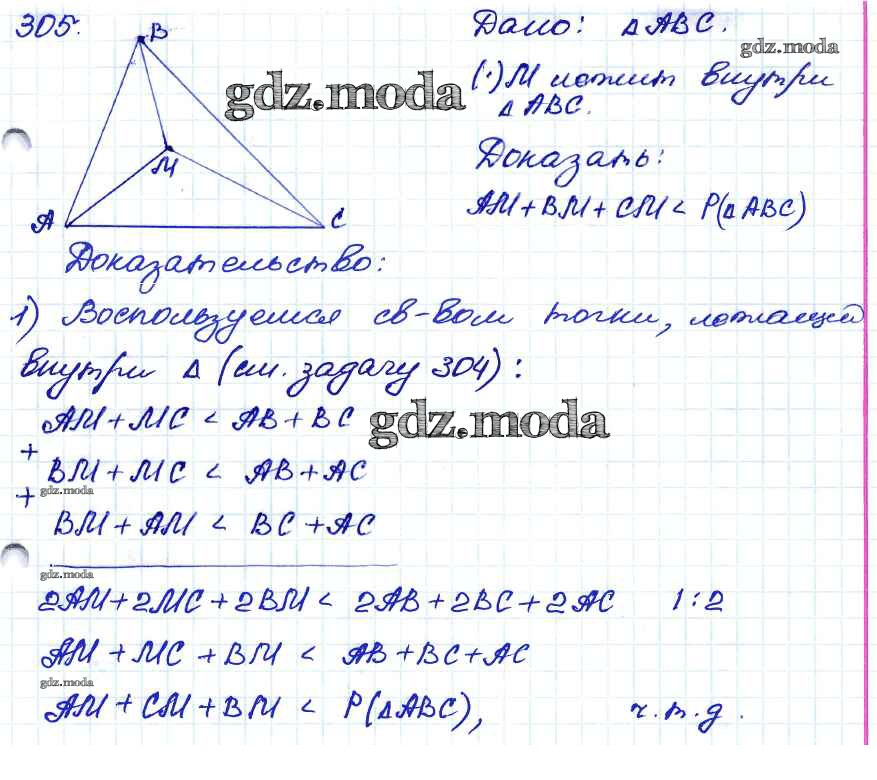 305.
B
M
A
C
Дано: △ABC.
gdz.moda
(·) M лежит внутри
△ABC.
gdz.moda
Доказать:
AM + BM + CM < P(△ABC)
Доказательство:
1) Воспользуемся св-вом точки, лежащей
внутри △ (см. задачу 304):
AM + MC < AB + BC
gdz.moda
+
BM + MC < AB + AC
+ gdz.moda
BM + AM < BC + AC
gdz.moda
2AM + 2MC + 2BM < 2AB + 2BC + 2AC | : 2
AM + MC + BM < AB + BC + AC
gdz.moda
AM + CM + BM < P(△ABC), ч.т.д.